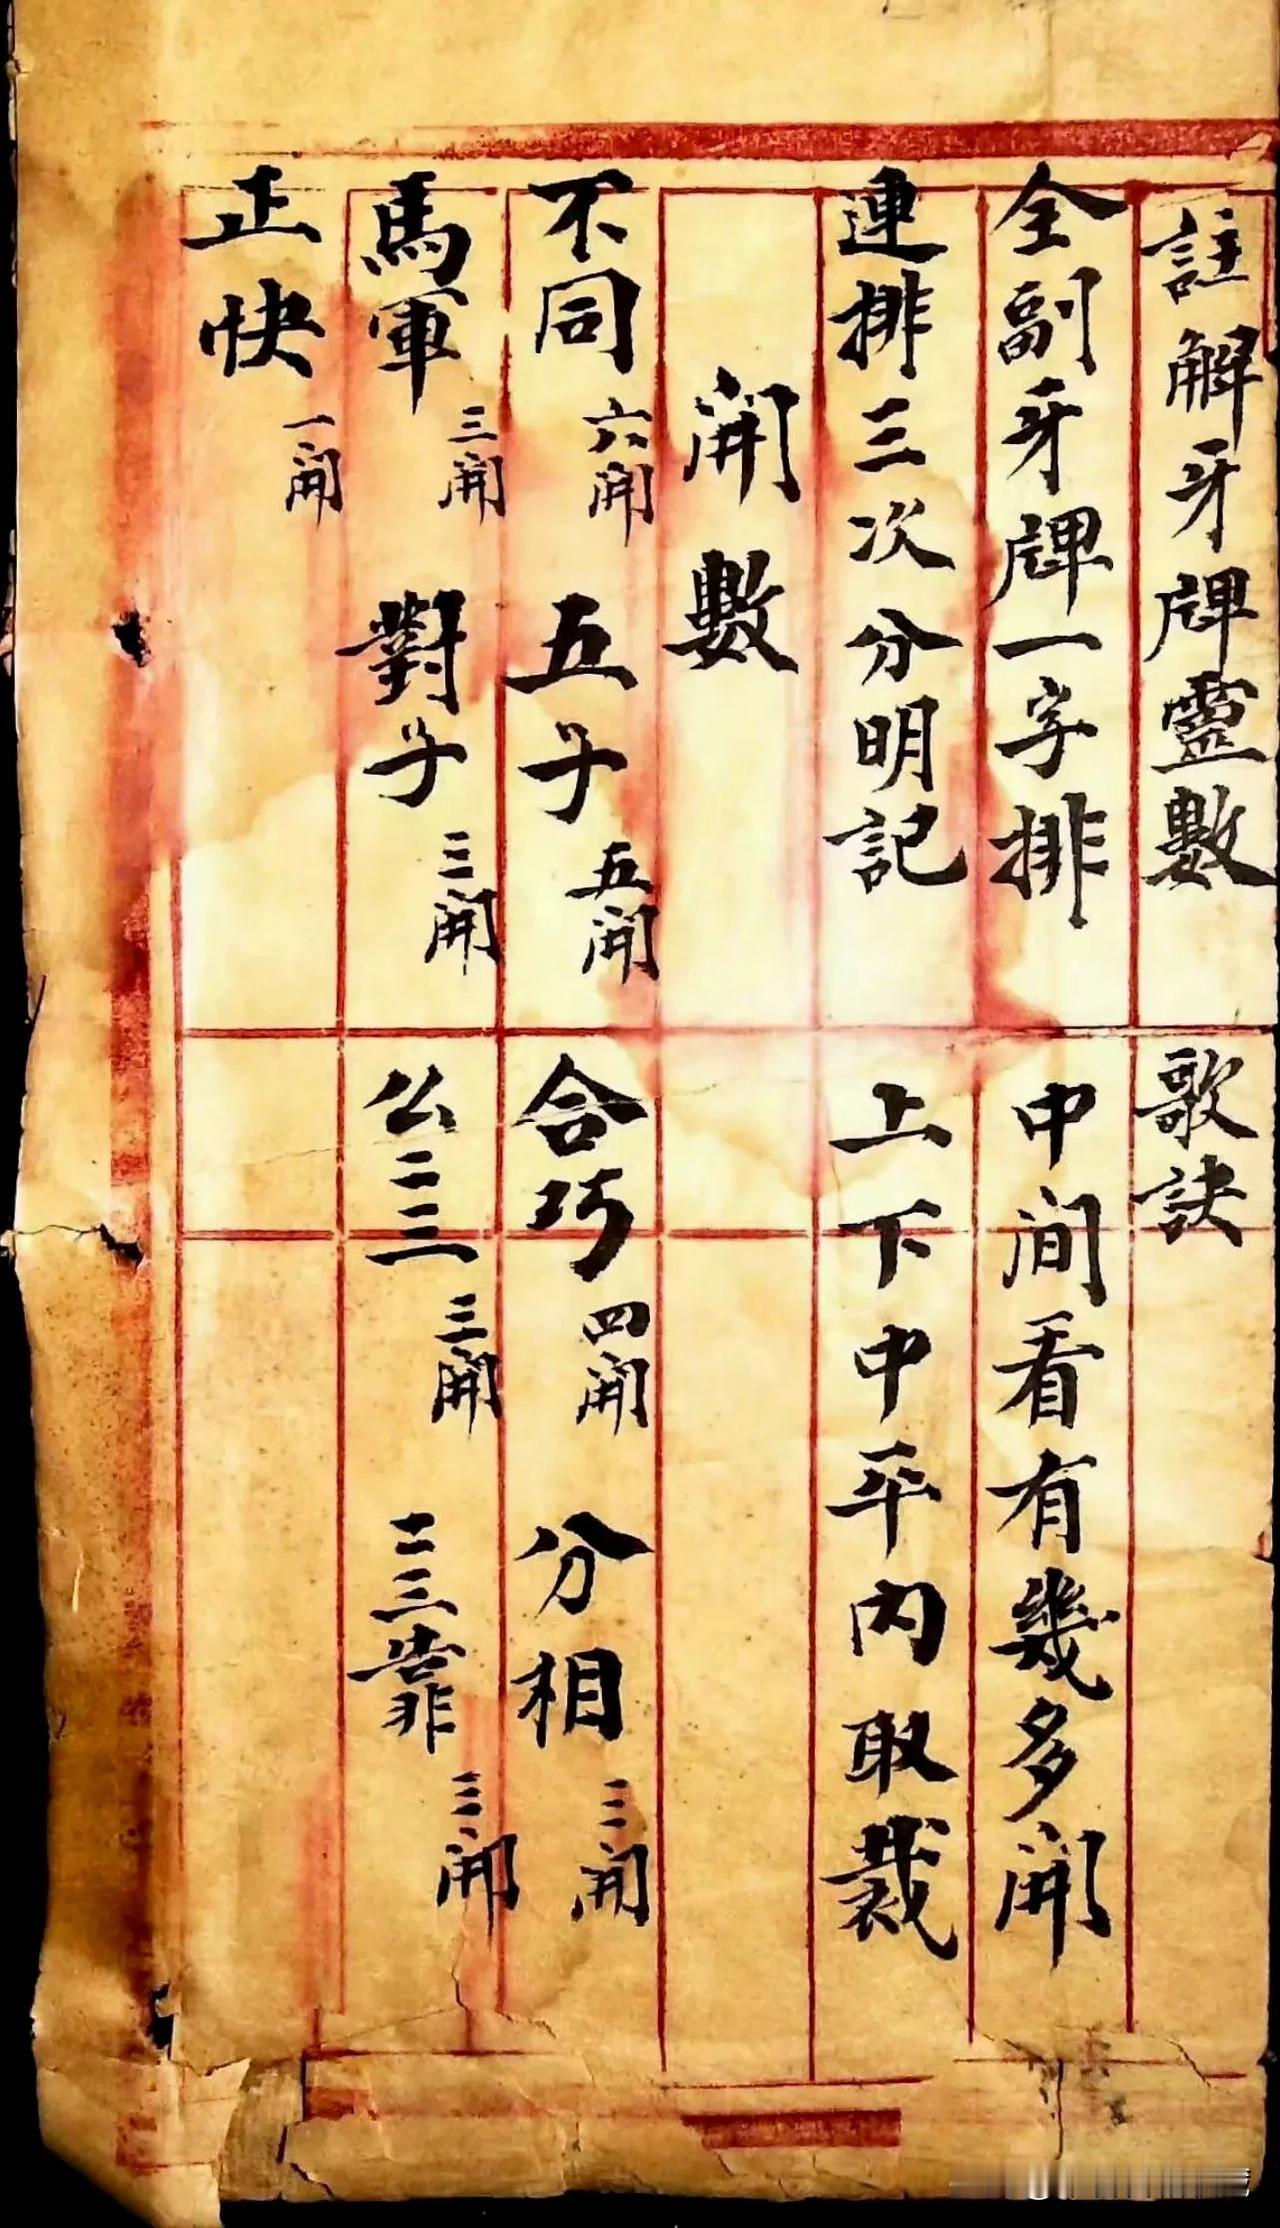 註解牙牌靈數 歌訣
全副牙牌一字排 中間看有幾多開
連排三次分明記 上下中平內取裁
開數
不同 六開 五子 五開 合巧 四開 分相 三開
馬軍 三開 對子 三開 公二三 三開 二三靠 三開
正快 一開